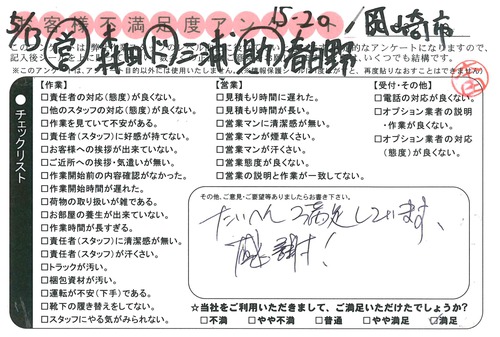 お客様不満足度アンケート
15-20
岡崎市
5/13 営 森田
【作業】
□責任者の対応(態度)が良くない。
□他のスタッフの対応(態度)が良くない。
□作業を見ていて不安がある。
□責任者(スタッフ)に好感が持てない。
□お客様への挨拶が出来ていない。
□ご近所への挨拶・気遣いが無い。
□作業開始前の内容確認がなかった。
□作業開始時間が遅れた。
□荷物の取り扱いが雑である。
□お部屋の養生が出来ていない。
□作業時間が長すぎる。
□責任者(スタッフ)に清潔感が無い。
□責任者(スタッフ)が汗くさい。
□トラックが汚い。
□梱包資材が汚い。
□運転が不安(下手)である。
□靴下の履き替えをしてない。
□スタッフにやる気がみられない。
【営業】
□見積もり時間に遅れた。
□見積もり時間が長い。
□営業マンに清潔感が無い。
□営業マンが煙草くさい。
□営業マンが汗くさい。
□営業態度が良くない。
□営業の説明と作業が一致してない。
【受付・その他】
□電話の対応が良くない。
□オプション業者の説明
・作業が良くない。
□オプション業者の対応
(態度)が良くない。
チェックリスト
その他、ご意見・ご要望等ありましたらお書き下さい。
たいへん満足しています、
感謝!
☆当社をご利用いただきまして、ご満足いただけたでしょうか?
□不満 □やや不満 □普通 □やや満足 ☑満足